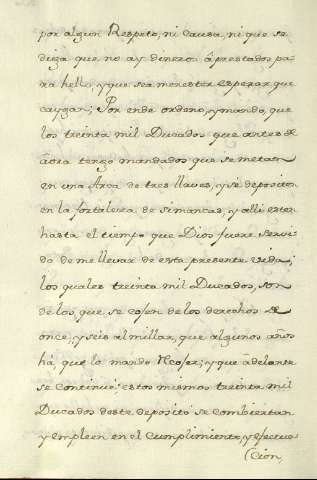 por algun Respeto, ni causa, ni que se
diga que no ay dineros aprestados pa
ra hello, y que sea menester esperar que
caygan; Por ende ordeno, y mando, que
los treinta mil Ducados que antes de
aora tengo mandados que se metan
en una Arca de tres llaves, y se depositen
en la fortaleza de simancas, y alli esten
hasta el tiempo que Dios fuere servi
do de me llevar de esta presente vida;
los quales treinta mil Ducados, son
de los que se cojen de los derechos de
once, y seis al millar, que algunos años
há, que lo mando Recojer; y que adelante
se continue: estos mismos treinta mil
Ducados deste deposito se combiertan
y empleen en el cumplimiento, y efectua
cion,